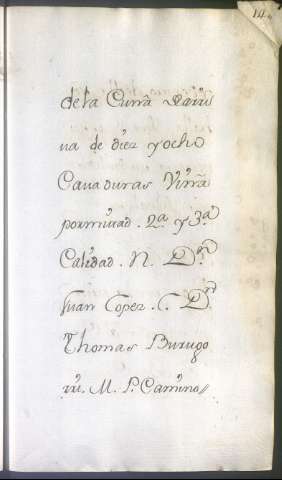 14.
de la Curra Darri
va de diez y ocho
Cavaduras Virrã
por mitad. 2ª y 3ª
Calidad. N. Dⁿ
Juan Lopez. C. Dⁿ
Thomas Burugo
rri. M. P. Camino //